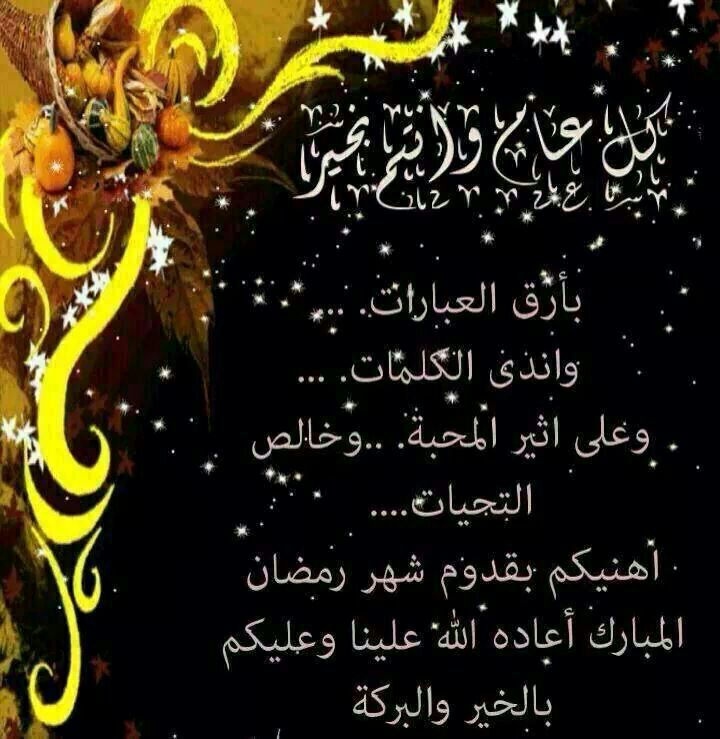 كل عام وانتم بخير
بأرق العبارات. ...
واندى الكلمات. ...
وعلى اثير المحبة. ..وخالص
التحيات....
اهنيكم بقدوم شهر رمضان
المبارك أعاده الله علينا وعليكم
بالخير والبركة